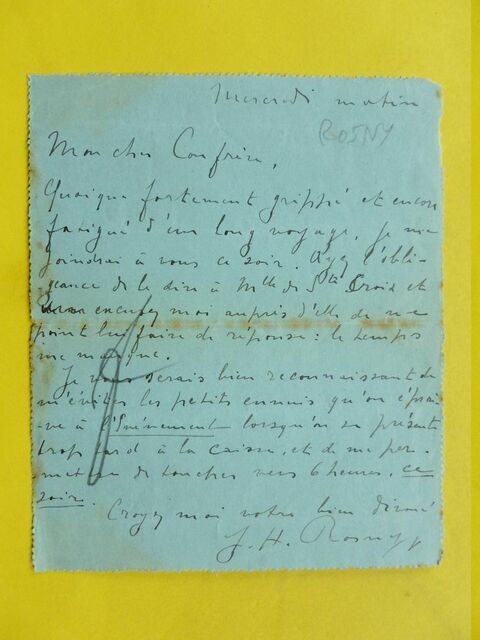 Mercredi matin
ROSNY
Mon cher Confrère,
Quoique fortement grippé et encore
fatigué d'un long voyage, je me
joindrai à vous ce soir. Ayez l'obli-
geance de le dire à Mlle de Ste Croix et
excusez moi auprès d'elle de ne
point lui faire de réponse : le temps
me manque.
Je vous serais bien reconnaissant de
m'éviter les petits ennuis qu'on éprou-
ve à l'Evénement lorsqu'on se présente
trop tard à la caisse, et de me per-
mettre de toucher vers 6 heures, ce
soir.
Croyez moi votre bien dévoué
J. H. Rosny